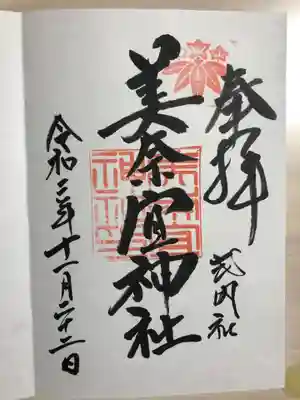 奉拝
式内社
美奈宜神社
令和二年十一月二十二日